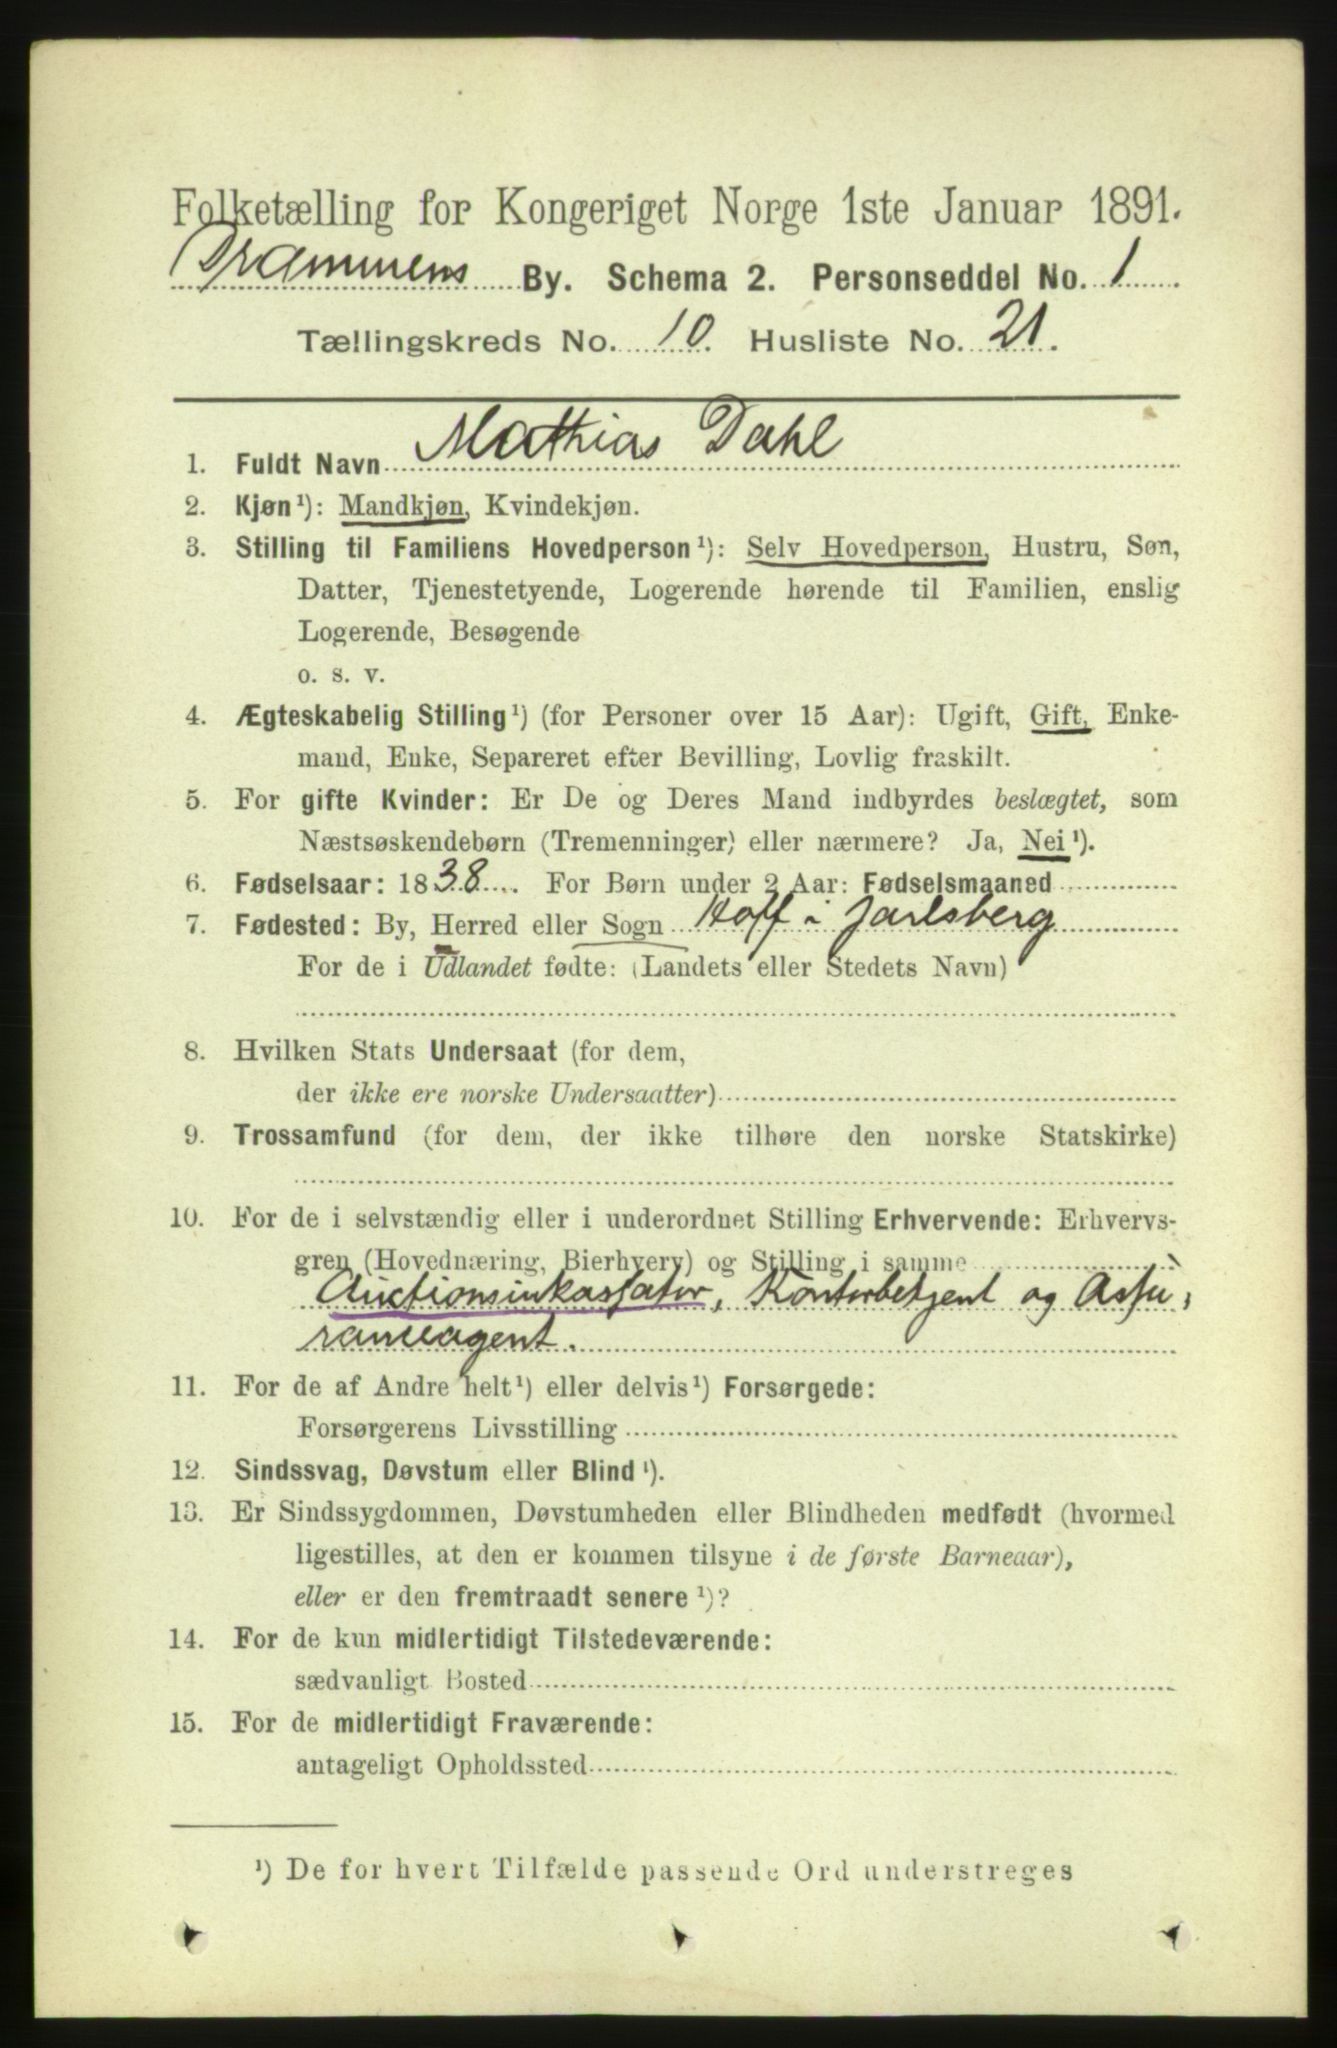 Folketælling for Kongeriget Norge 1ste Januar 1891.
Drammens By. Schema 2. Personseddel No. 1
Tællingskreds No. 10. Husliste No. 21.
1. Fuldt Navn Mathias Dahl
2. Kjøn¹): Mandkjøn, Kvindekjøn.
3. Stilling til Familiens Hovedperson¹): Selv Hovedperson, Hustru, Søn,
Datter, Tjenestetyende, Logerende hørende til Familien, enslig
Logerende, Besøgende
o. s. v.
4. Ægteskabelig Stilling¹) (for Personer over 15 Aar): Ugift, Gift, Enke-
mand, Enke, Separeret efter Bevilling, Lovlig fraskilt.
5. For gifte Kvinder: Er De og Deres Mand indbyrdes beslægtet, som
Næstsøskendebørn (Tremenninger) eller nærmere? Ja, Nei¹).
6. Fødselsaar: 1838. For Børn under 2 Aar: Fødselsmaaned
7. Fødested: By, Herred eller Sogn Hoff i Jarlsberg
For de i Udlandet fødte: (Landets eller Stedets Navn)
8. Hvilken Stats Undersaat (for dem,
der ikke ere norske Undersaatter)
9. Trossamfund (for dem, der ikke tilhøre den norske Statskirke)
10. For de i selvstændig eller i underordnet Stilling Erhvervende: Erhvervs-
gren (Hovednæring, Bierhverv) og Stilling i samme
Auktionsinkassator, Kontorbetjent og Assu-
ranceagent.
11. For de af Andre helt¹) eller delvis¹) Forsørgede:
Forsørgerens Livsstilling
12. Sindssvag, Døvstum eller Blind¹).
13. Er Sindssygdommen, Døvstumheden eller Blindheden medfødt (hvormed
ligestilles, at den er kommen tilsyne i de første Barneaar),
eller er den fremtraadt senere¹)?
14. For de kun midlertidigt Tilstedeværende:
sædvanligt Bosted
15. For de midlertidigt Fraværende:
antageligt Opholdssted
¹) De for hvert Tilfælde passende Ord understreges